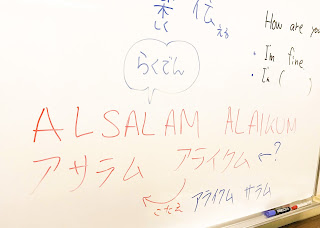 楽しく 伝える
How are you
・I'm fine
・I'm (　　)
らくでん
ALSALAM ALAIKUM
アサラム アライクム ←?
こたえ アライクム サラム